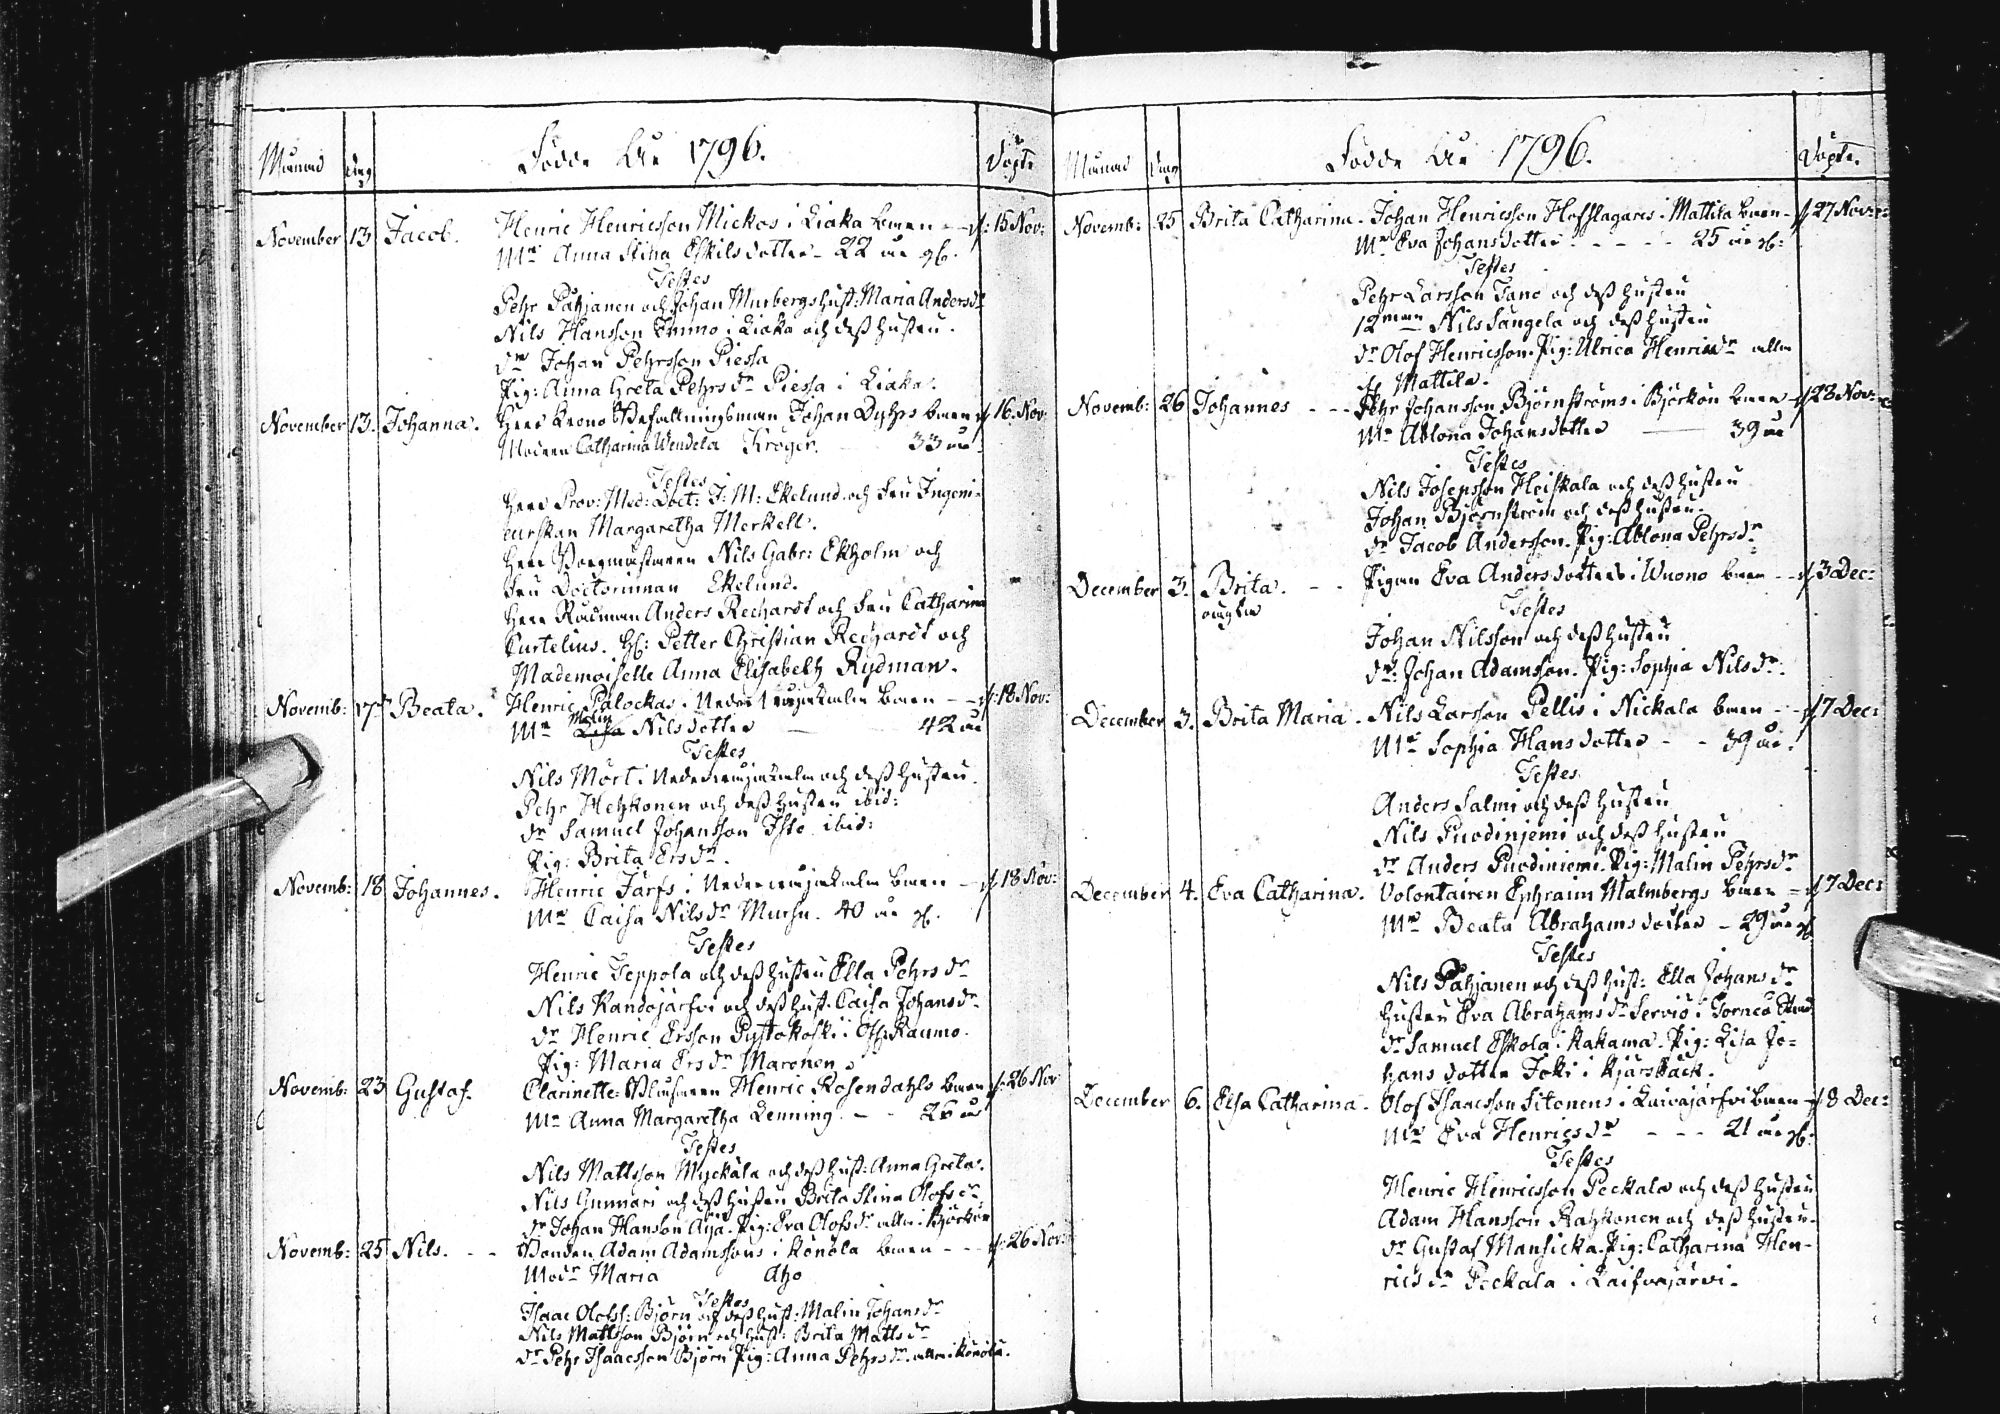 Månad Dag Födde År 1796. Döpte
November 13 Jacob. Henric Henricsson Mickos i Liaka barn - d: 15 Nov:
Mr Anna Stina Eskilsdotter - 22 år gl.
Testes
Pehr Pähjanen och Johan Murbergs hust: Maria Andersdr
Nils Hansson Emmo i Liaka och dess hustru.
dr Johan Pehrsson Piessa
Pig: Anna Greta Pehrsdr Piessa i Liaka.
November 13. Johanna. Herr Krono Befallningsman Johan Dyhrs barn d 16. Nov:
Modren Catharina Wendela Kröger. 33 år.
Testes
Herr Prov: Med: Doct: J: M: Ekelund och Fru Ingeni-
eurskan Margaretha Merkell.
Herr Borgmästaren Nils Gabr: Ekholm och
Fru Doctorinnan Ekelund.
Herr Rådman Anders Rechardt och Fru Catharina
Curtelius. H: Petter Christian Rechardt och
Mademoiselle Anna Elisabeth Rydman.
Novemb: 17 Beata. Henric Palockas i Neder barn - d: 18 Nov:
Mr Malin Lisa Nilsdotter - 42 år
Testes
Nils Mört i Neder och dess hustru.
Pehr Hehkonen och dess hustru ibid:
dr Samuel Johansson Isto ibid:
Pig: Brita Ersdr.
Novemb: 18 Johannes. Henric Järfs i Neder barn - d 18 Nov:
Mr Caisa Nilsdr 40 år gl.
Testes
Henric Teppola och dess hustru Ella Pehrsdr
Nils Kandojärfvi och dess hust. Caisa Johansdr
dr Henric Ersson Pyttokoski i Öfr: Raumo.
Pig: Maria Ersdr Maronen
Novemb: 23 Gustaf. Clarinette-Blåsaren Henric Rosendahls barn d: 26 Nov
Mr Anna Margaretha Lenning. - 26 år
Testes
Nils Mattsson Myckälä och dess hust: Anna Greta.
Nils Gunnari och dess hustru Brita Stina Olofsdr
dr Johan Hansson Aija. Pig: Eva Olofsdr alla i Björkön
Novemb: 25 Nils. - - Bonden Adam Adamssons i Könölä barn - - d: 26 Nov:
Modr Maria Aho
Testes
Isaac Olofss: Björn och dess hust: Malin Johansdr
Nils Mattsson Björn och hust: Brita Mattsdr
dr Pehr Isaacsson Björn Pig: Anna Pehrsdr. alla i Könölä.
Månad Dag Födde År 1796. Döpte.
Novemb: 25 Brita Catharina. Johan Henricsson Hofslagares i Mattila barn - d 27 Nov:
Mr Eva Johansdotter - - - - 25 år gl:
Testes
Pehr Larsson Tano och dess hustru
12man Nils Sangela och dess hustru
dr Olof Henricsson. Pig: Ulrica Henricsdr alla
fr. Mattila.
Novemb: 26 Johannes - - - Pehr Johansson Björnströms i Björkön barn - d 28 Nov:
Mr Ablona Johansdotter 39 år
Testes
Nils Josepsson Heiskala och dess hustru
Johan Björnström och dess hustru.
dr Jacob Andersson. Pig: Ablona Pehrsdr
December 3. Brita. - - Pigan Eva Andersdotters i Wuono barn - - d 3 Dec:
oägta
Testes
Johan Nilsson och dess hustru
dr: Johan Adamsson. Pig: Sophia Nilsdr.
December 3. Brita Maria. Nils Larsson Pellis i Nickala barn - - d 7 Dec:
Mr Sophia Hansdotter - - 39 år.
Testes
Anders Salmi och dess hustru
Nils Puodinjemi och dess hustru
dr Anders Puodiniemi. Pig: Malin Pehrsdr
December 4. Eva Catharina. Volontairen Ephraim Malmbergs barn - d 7 Dec:
Mr Beata Abrahamsdotter - 29 år gl.
Testes
Nils Pahjanen och dess hust: Ella Johansdr
hustru Eva Abrahamsdr Servio i Torneå Stad
dr Samuel Eskola i Kakama. Pig: Lisa Jo=
hansdotter Joki i Kjärsbäck.
December 6. Elsa Catharina. Olof Isaacsson Sitonens i Laivajärfvi barn - d 8 Dec:
Mr Eva Henricsdr - - - 21 år gl:
Testes
Henric Henricsson Peckala och dess hustru
Adam Hansson Rahkonen och dess hustru.
dr Gustaf Mansicka. Pig: Catharina Hen-
ricsdr Peckala i Laifvajärvi.